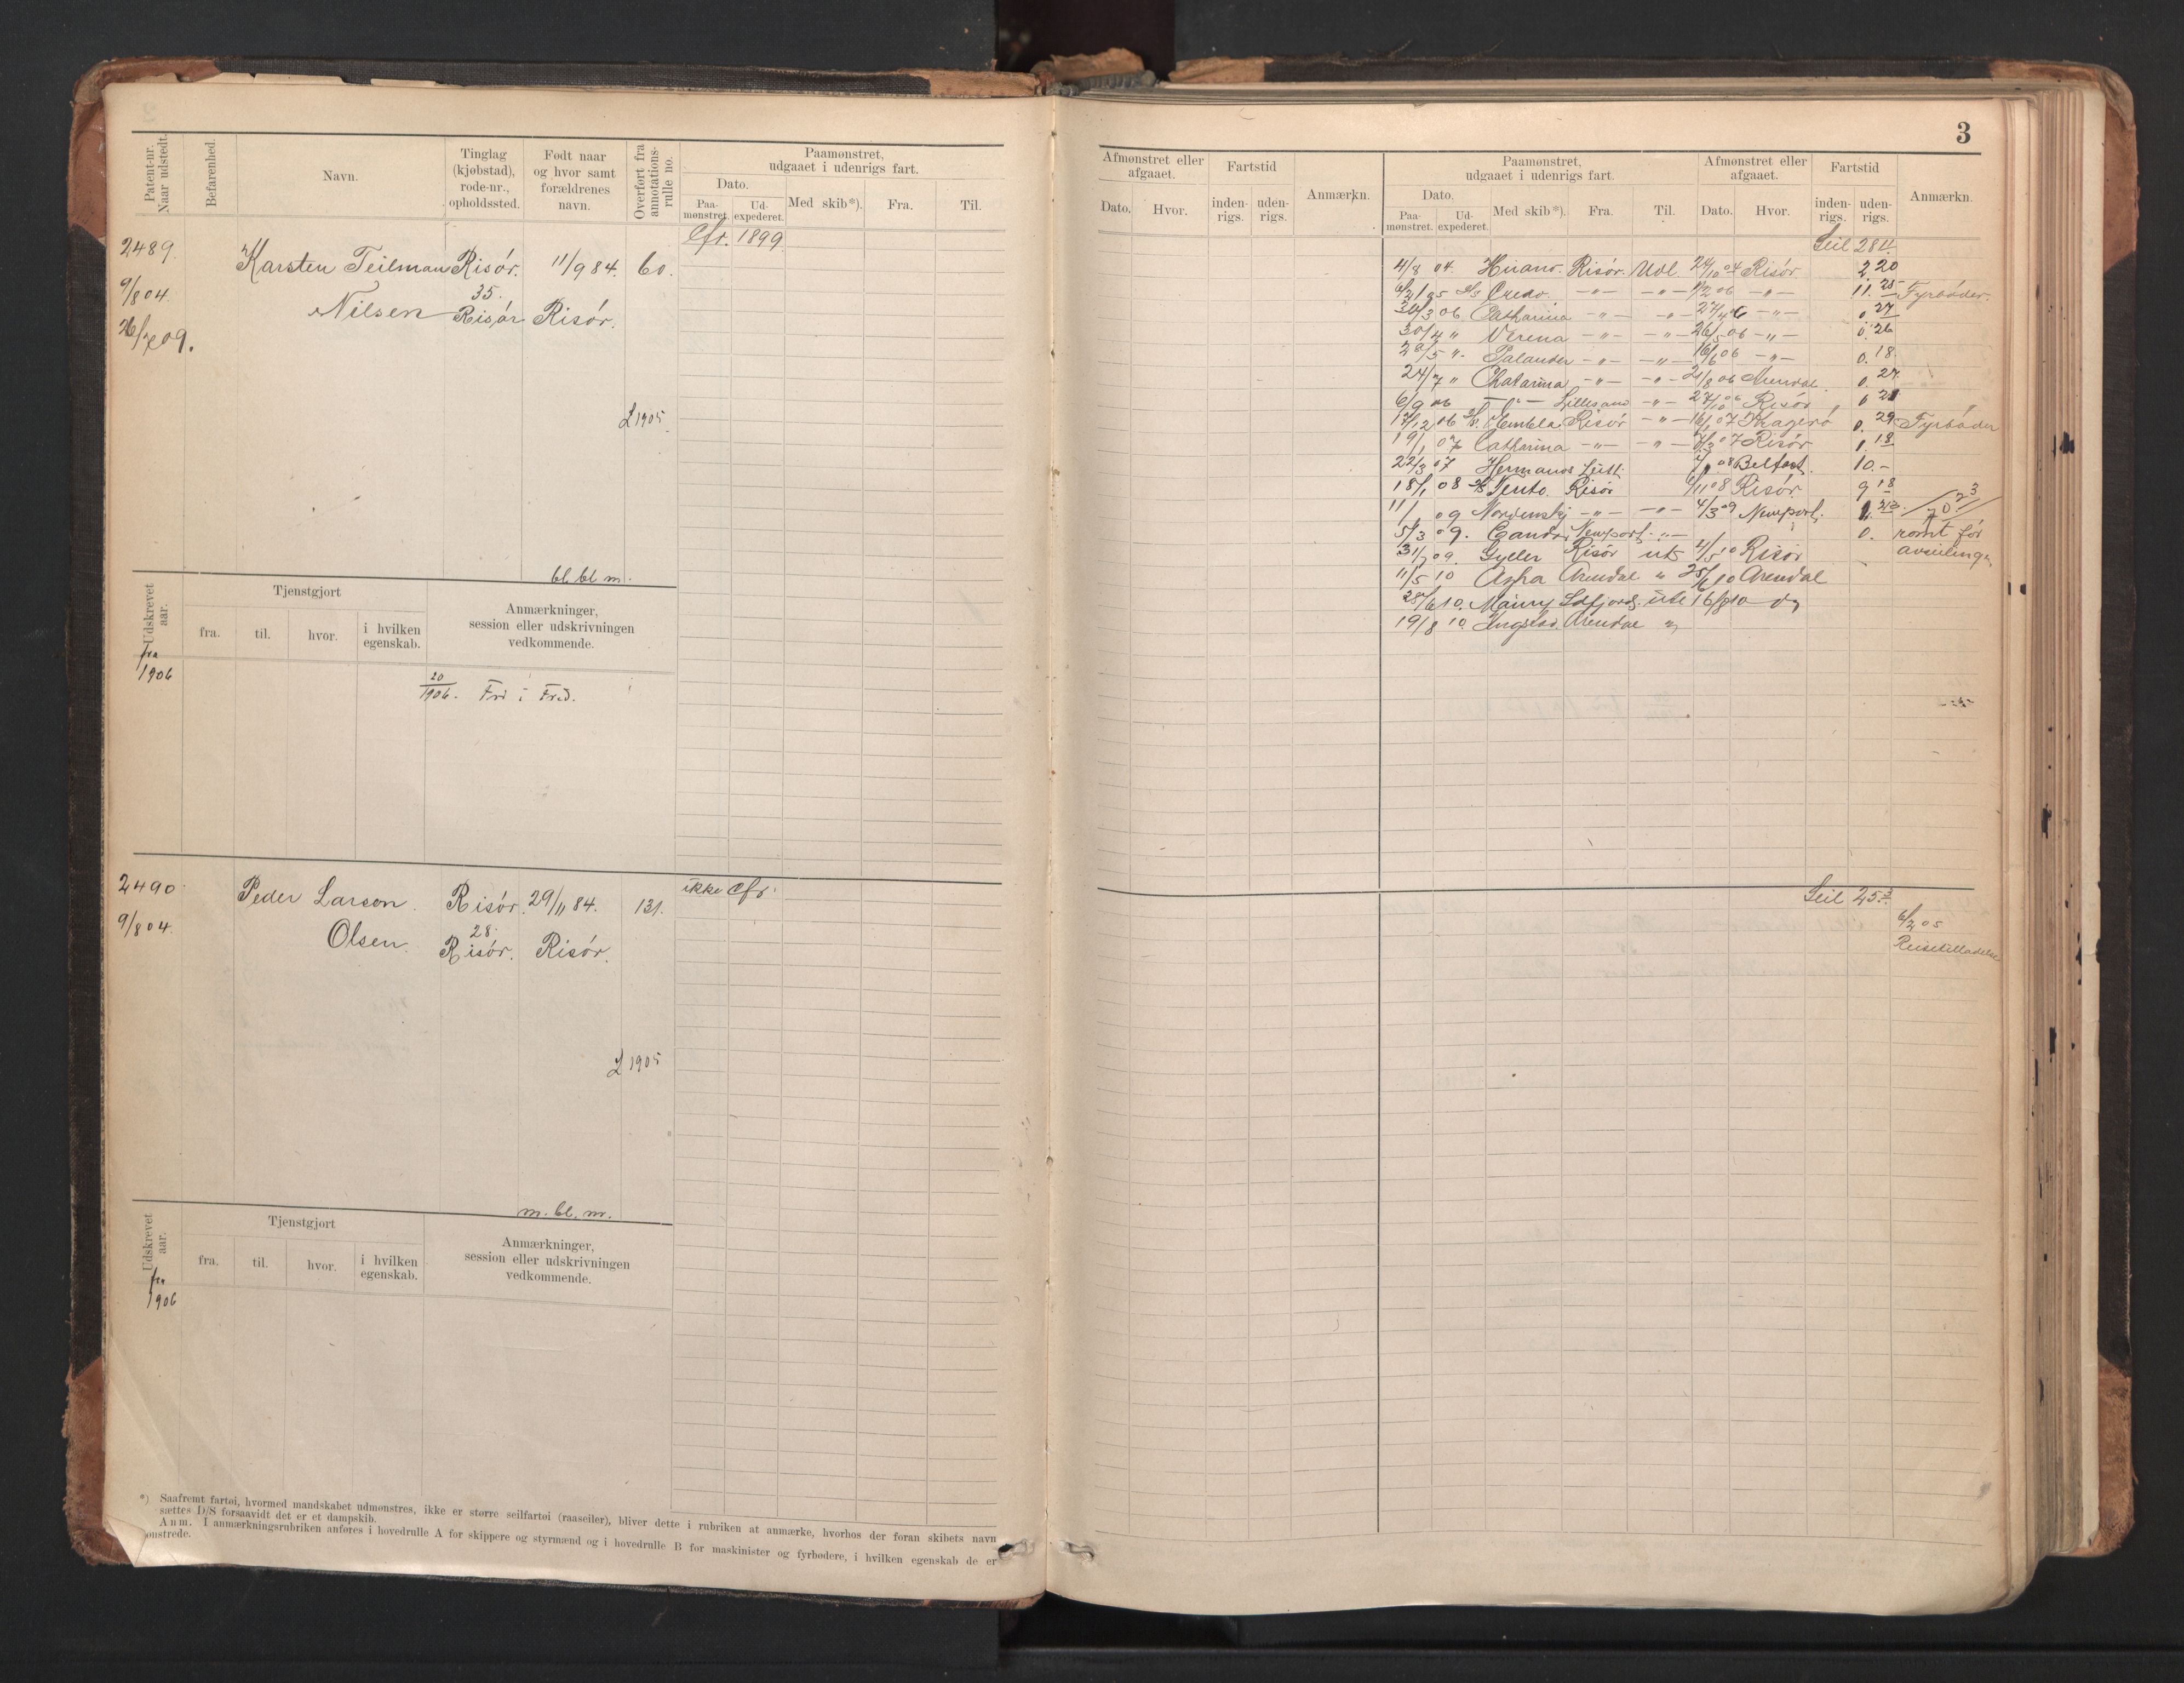 3
Patent-nr. Naar udstedt.
Befarenhed.
Navn.
Tinglag (kjøbstad), rode-nr., opholdssted.
Født naar og hvor samt forældrenes navn.
Overført fra annotations-rulle no.
Paamønstret, udgaaet i udenrigs fart.
Dato.
Paa-mønstret.
Ud-expederet.
Med skib*).
Fra.
Til.
Cfr. 1899
2489.
9/8 04.
26/7 09.
Karsten Teilman Risør. 11/9 84. 60.
35.
Nilsen Risør Risør.
L 1905
bl. bl. m.
Udskrevet aar.
Tjenstgjort
fra.
til.
hvor.
i hvilken egenskab.
Anmærkninger, session eller udskrivningen vedkommende.
fra
1906
20/1906. Fri i Fred.
2490.
9/8 04.
Peder Larson. Risør. 29/11 84. 131. ikke Cfr.
28.
Olsen. Risør. Risør.
L 1905
m. bl. m.
Udskrevet aar.
Tjenstgjort
fra.
til.
hvor.
i hvilken egenskab.
Anmærkninger, session eller udskrivningen vedkommende.
fra
1906
*) Saafremt fartøi, hvormed mandskabet udmønstres, ikke er større seilfartøi (raaseiler), bliver dette i rubriken at anmærke, hvorhos der foran skibets navn
sættes D/S forsaavidt det er et dampskib.
Anm. I anmærkningsrubriken anføres i hovedrulle A for skippere og styrmænd og i hovedrulle B for maskinister og fyrbødere, i hvilken egenskab de er
ønstrede.
Afmønstret eller afgaaet.
Dato.
Hvor.
Fartstid
inden-rigs.
uden-rigs.
Anmærkn.
Paamønstret, udgaaet i udenrigs fart.
Dato.
Paa-mønstret.
Ud-expederet.
Med skib*).
Fra.
Til.
Afmønstret eller afgaaet.
Dato.
Hvor.
Fartstid
inden-rigs.
uden-rigs.
Anmærkn.
Seil 28
4/8 04. Risør. Udl 24/10 04 Risør 2 20
05 Credo -"- -"- 1/2 06 -"- 11. 25 Fyrbøder.
30/3 06 Catharina -"- -"- 27/4 06 -"- 0 27
30/4 " Verena -"- -"- 26/5 06 -"- 0 26
28/5 " Palander -"- -"- 16/6 06 -"- 0. 18
24/7 " Chatarina -"- -"- 21/8 06 Arendal. 0. 27
6/9 06 -"- Lillesand -"- Risør 21
17/12 06 Embla Risør -"- 16/1 07 Kragerø 0. 29 Fyrbøder
19/1 07 Catharina -"- -"- 07 Risør 1. 18
22/3 07 Hermanos 08 Belfast. 10.-
18/1 08 Tento. Risør 11 08 Risør 9 18
11/1 09 -"- -"- 4/3 09 Newport. 23
5/3 09. Newport. -"- 0. rømt før
31/7 09. Gyller Risør ut 4/5 10 Risør avseilingen
11/5 10 Arendal " 25/6 10 Arendal
28/6 10. ute 16/8 10 do
19/8 10. Arendal "
Seil 25.
05
Reisetilladelse